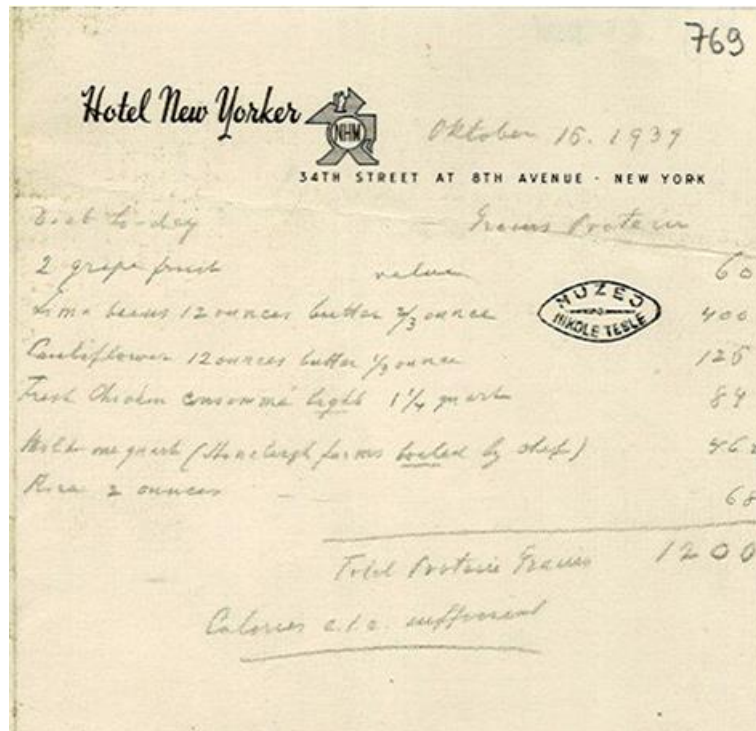 769
Hotel New Yorker
NHM
Oktober 15. 1939
34TH STREET AT 8TH AVENUE - NEW YORK
Diet to-day Grams Protein
2 grape fruit value 60
MUZEJ
NIKOLE TESLE
Lima beans 12 ounces butter 2/3 ounce 400
Cauliflower 12 ounces butter 1/3 ounce 125
Fresh Chicken consommé light 1 1/4 quart 84
Milk one quart (Stoneleigh farms boiled by chef) 462
Rice 2 ounces 68
Total Proteine Grams 1200
Calories e.t.c. sufficient